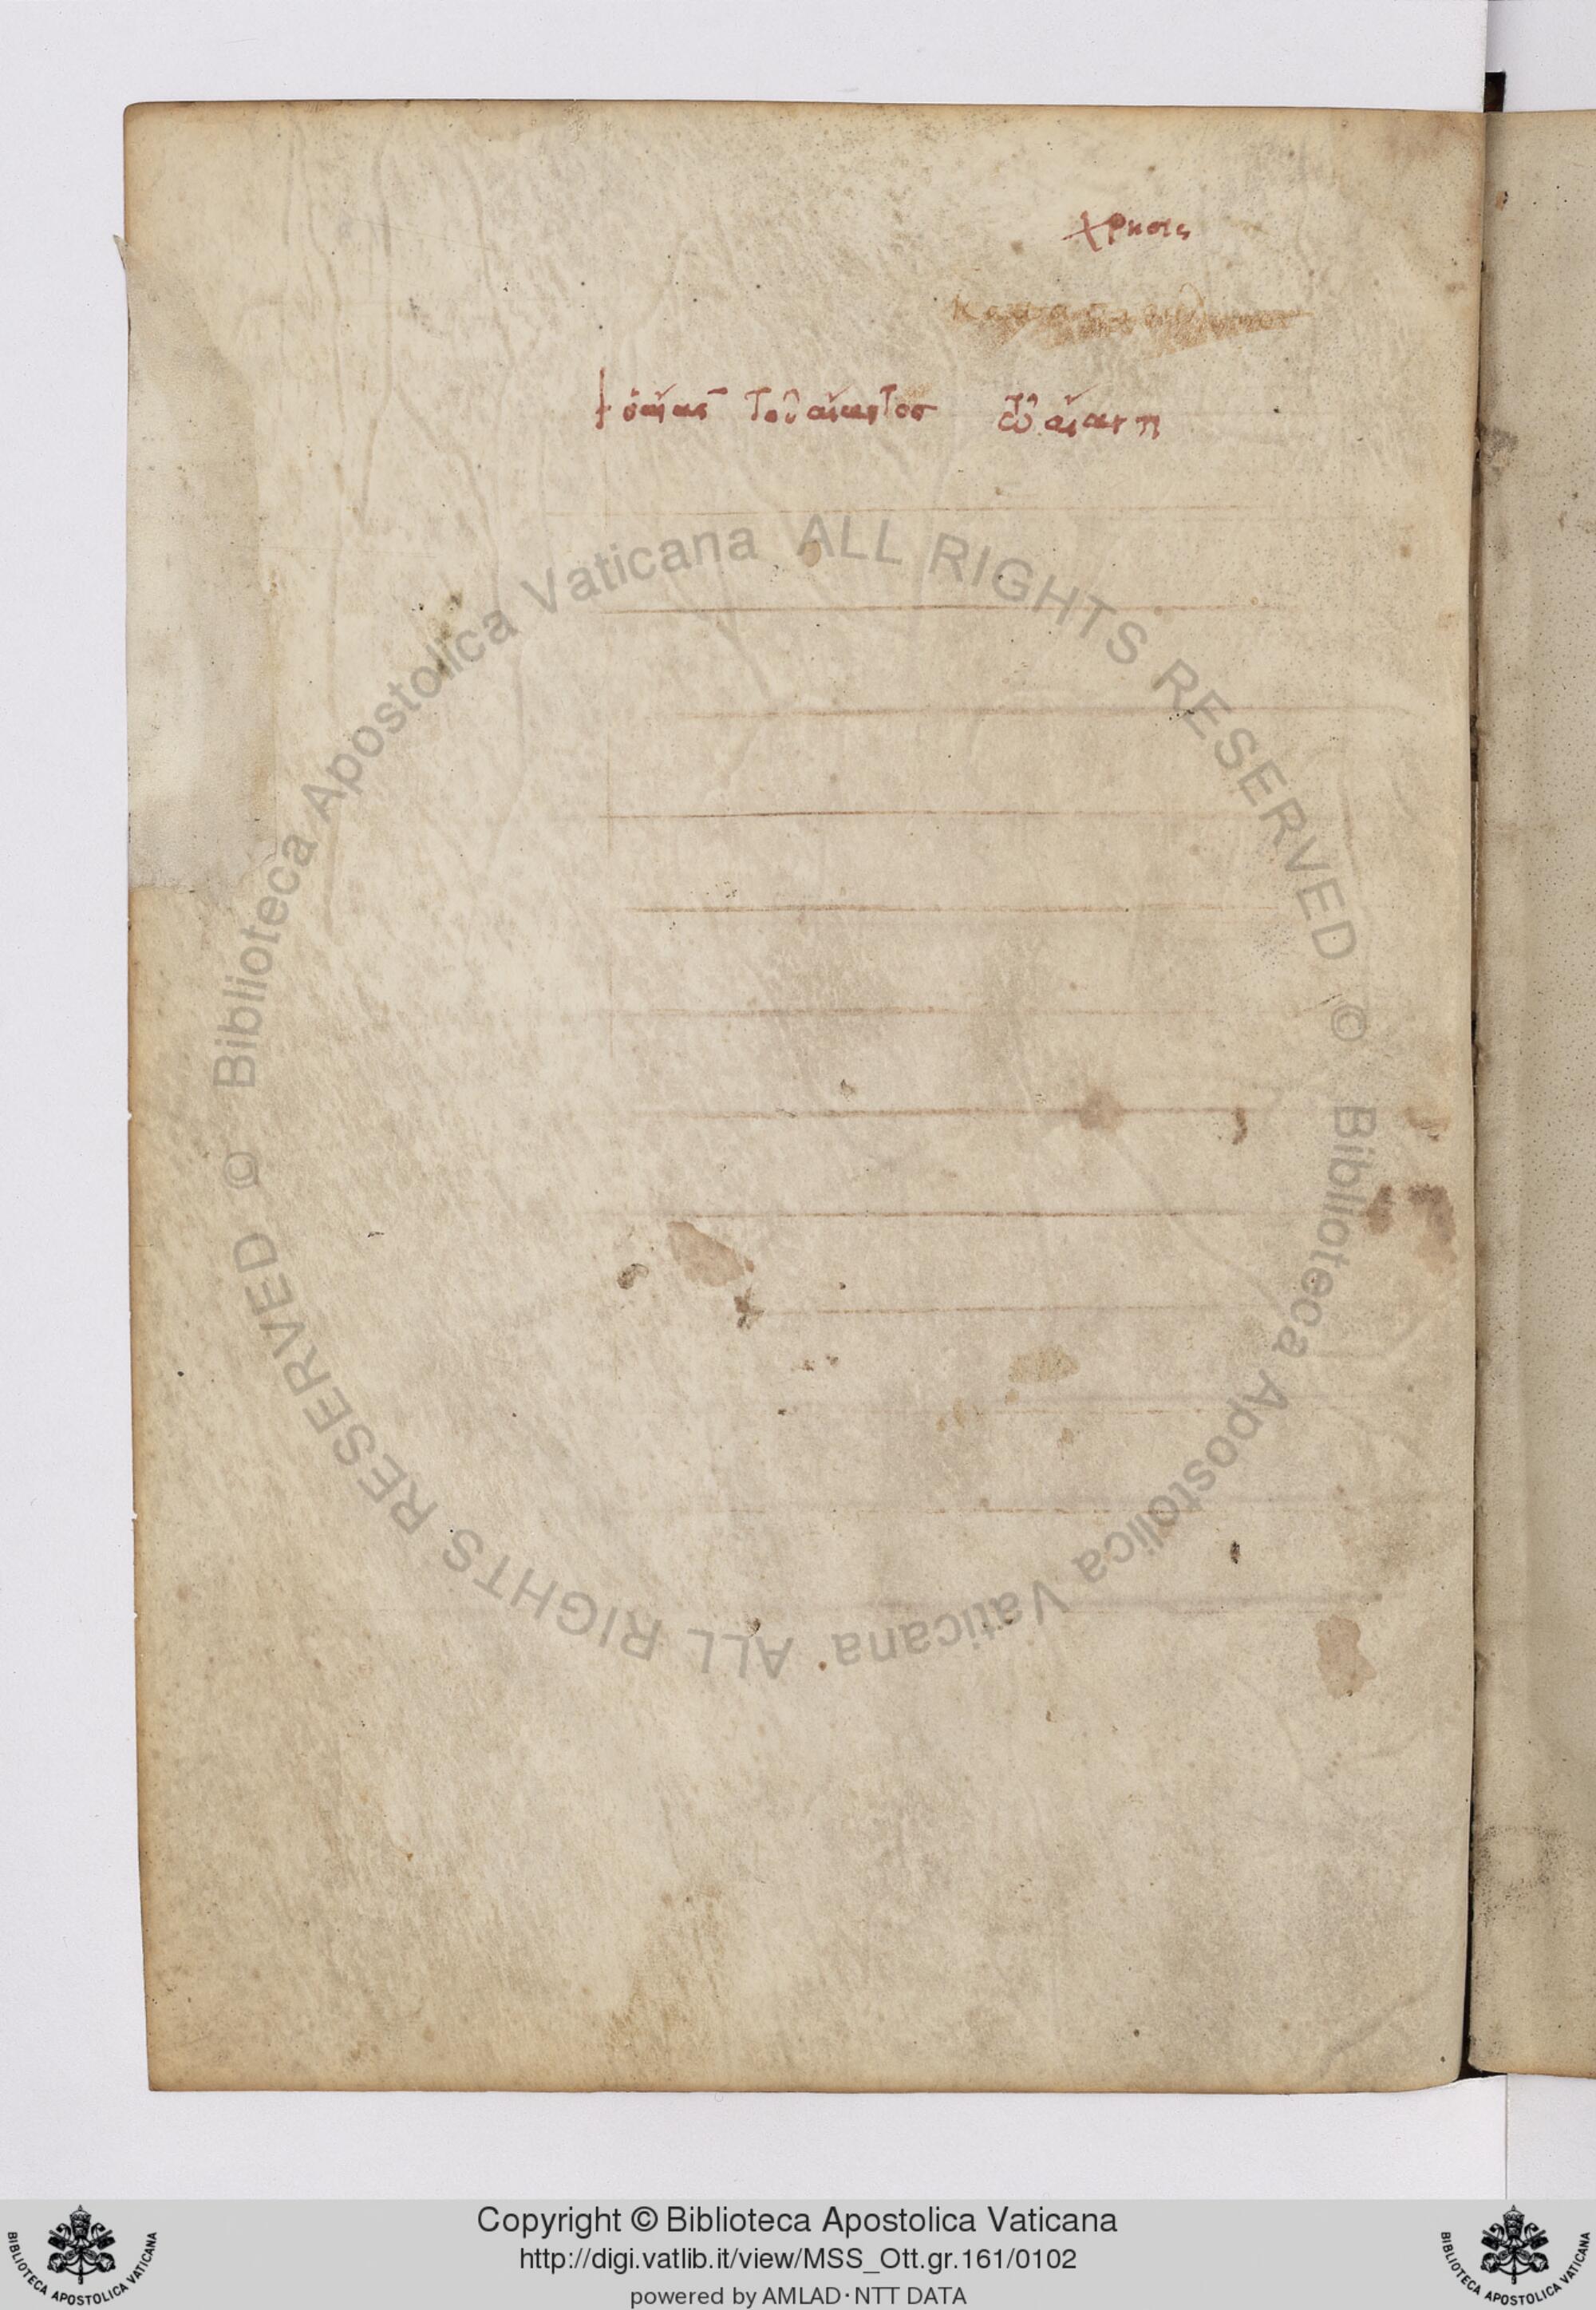 χρησις
† ὁ αἴας τοῦ αἴαντος ὦ αἶαν
© Biblioteca Apostolica Vaticana ALL RIGHTS RESERVED
© Biblioteca Apostolica Vaticana ALL RIGHTS RESERVED
Copyright © Biblioteca Apostolica Vaticana
http://digi.vatlib.it/view/MSS_Ott.gr.161/0102
powered by AMLAD·NTT DATA
BIBLIOTECA APOSTOLICA VATICANA
BIBLIOTECA APOSTOLICA VATICANA